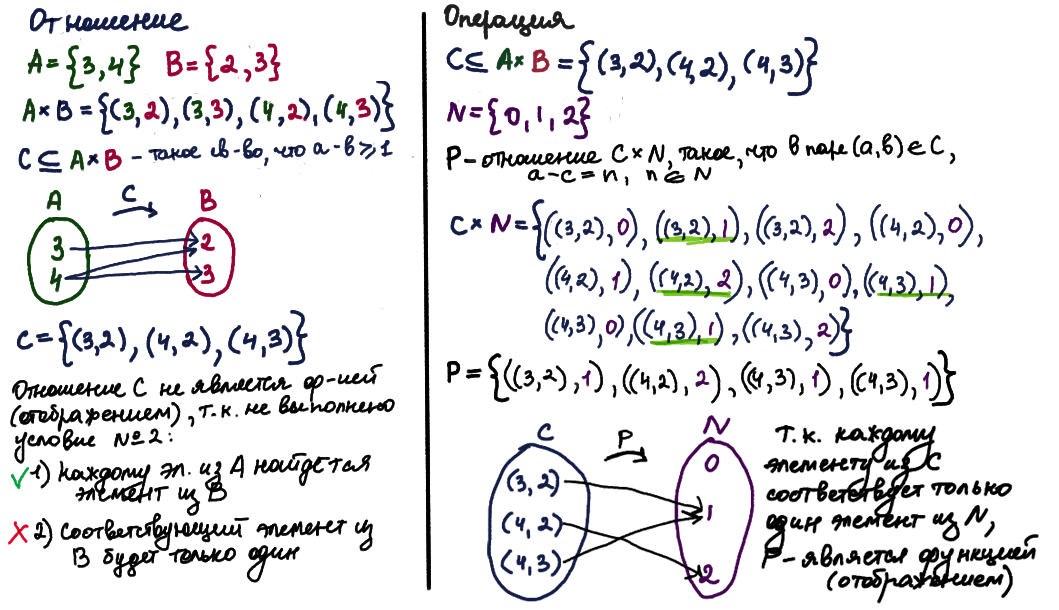 Отношение
A={3,4} B={2,3}
A×B={(3,2),(3,3),(4,2),(4,3)}
C⊆A×B - такое св-во, что a-b⩾1
A C B
3 2
4 3
C={(3,2),(4,2),(4,3)}
Отношение C не является ф-ией
(отображением), т.к. не выполнено
условие №2:
✓1) каждому эл. из A найдётся
элемент из B
✗2) соответствующий элемент из
B будет только один
Операция
C⊆A×B={(3,2),(4,2),(4,3)}
N={0,1,2}
P-отношение C×N, такое, что в паре (a,b)∈C,
a-c=n, n∈N
C×N={((3,2),0),((3,2),1),((3,2),2),((4,2),0),
((4,2),1),((4,2),2),((4,3),0),((4,3),1),
((4,3),0),((4,3),1),((4,3),2)}
P={((3,2),1),((4,2),2),((4,3),1),((4,3),1)}
C P N
(3,2) 0
(4,2) 1
(4,3) 2
Т.к. каждому
элементу из C
соответствует только
один элемент из N,
P-является функцией
(отображением)